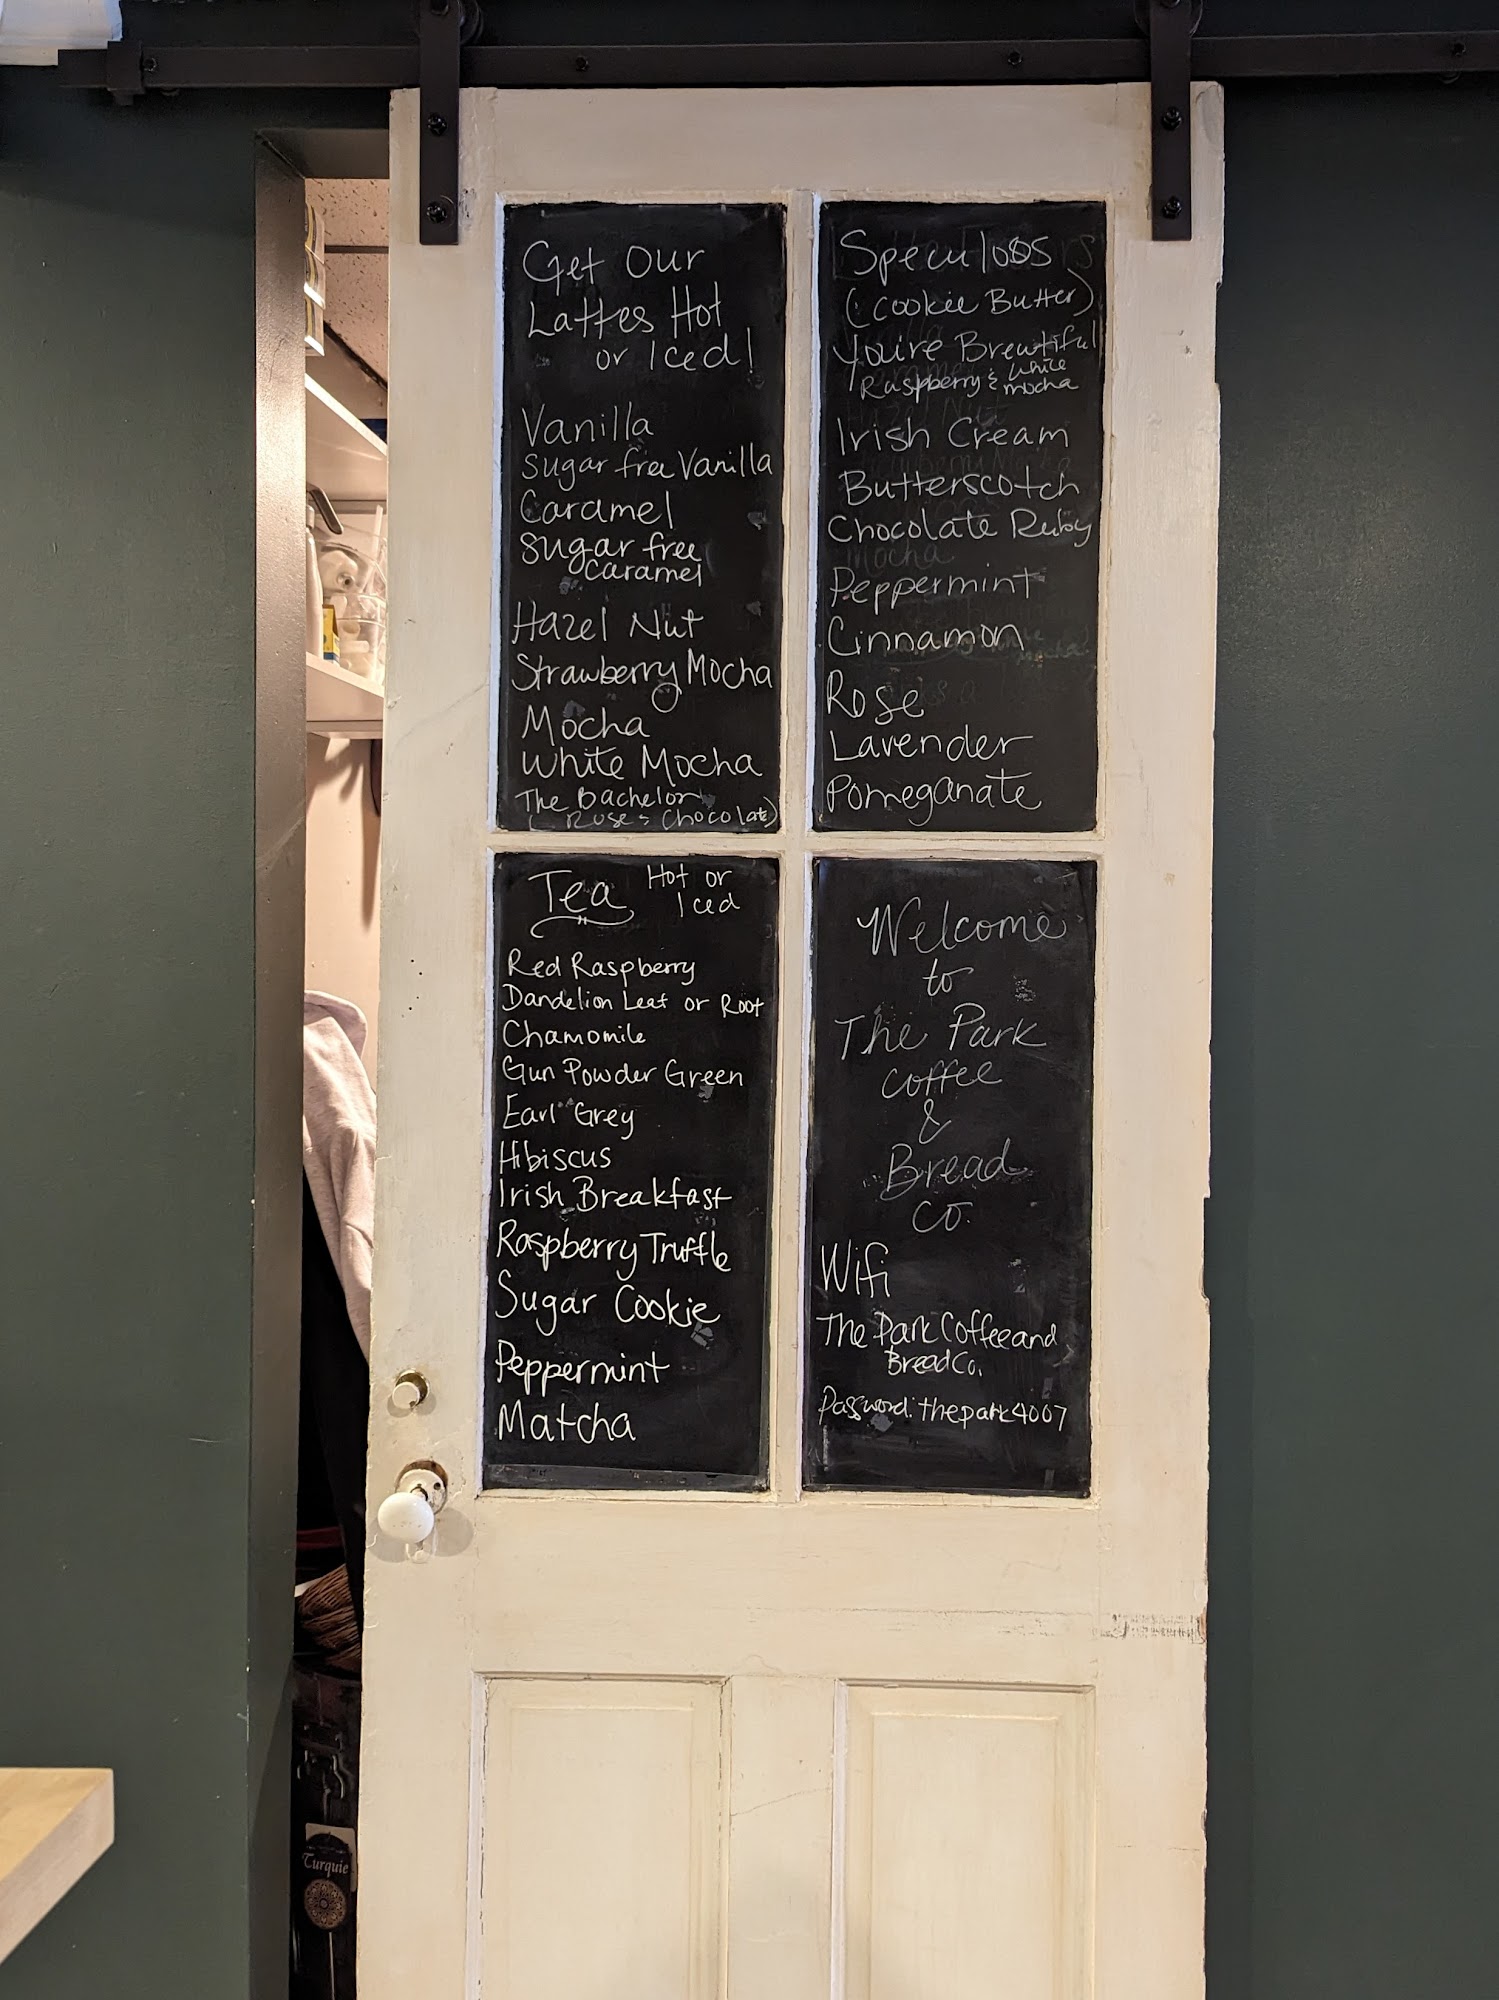 Get Our
Lattes Hot
or Iced!
Vanilla
Sugar free Vanilla
Caramel
Sugar free
Caramel
Hazel Nut
Strawberry Mocha
Mocha
White Mocha
The Bachelor
(Rose & Chocolate)
Speculoos
(Cookie Butter)
You're Brewtiful
Raspberry & White
mocha
Irish Cream
Butterscotch
Chocolate Ruby
Peppermint
Cinnamon
Rose
Lavender
Pomeganate
Tea Hot or
Iced
Red Raspberry
Dandelion Leaf or Root
Chamomile
Gun Powder Green
Earl Grey
Hibiscus
Irish Breakfast
Raspberry Truffle
Sugar Cookie
Peppermint
Matcha
Welcome
to
The Park
Coffee
&
Bread
Co.
Wifi
The Park Coffeeand
BreadCo.
Password: thepark4007
Turquie